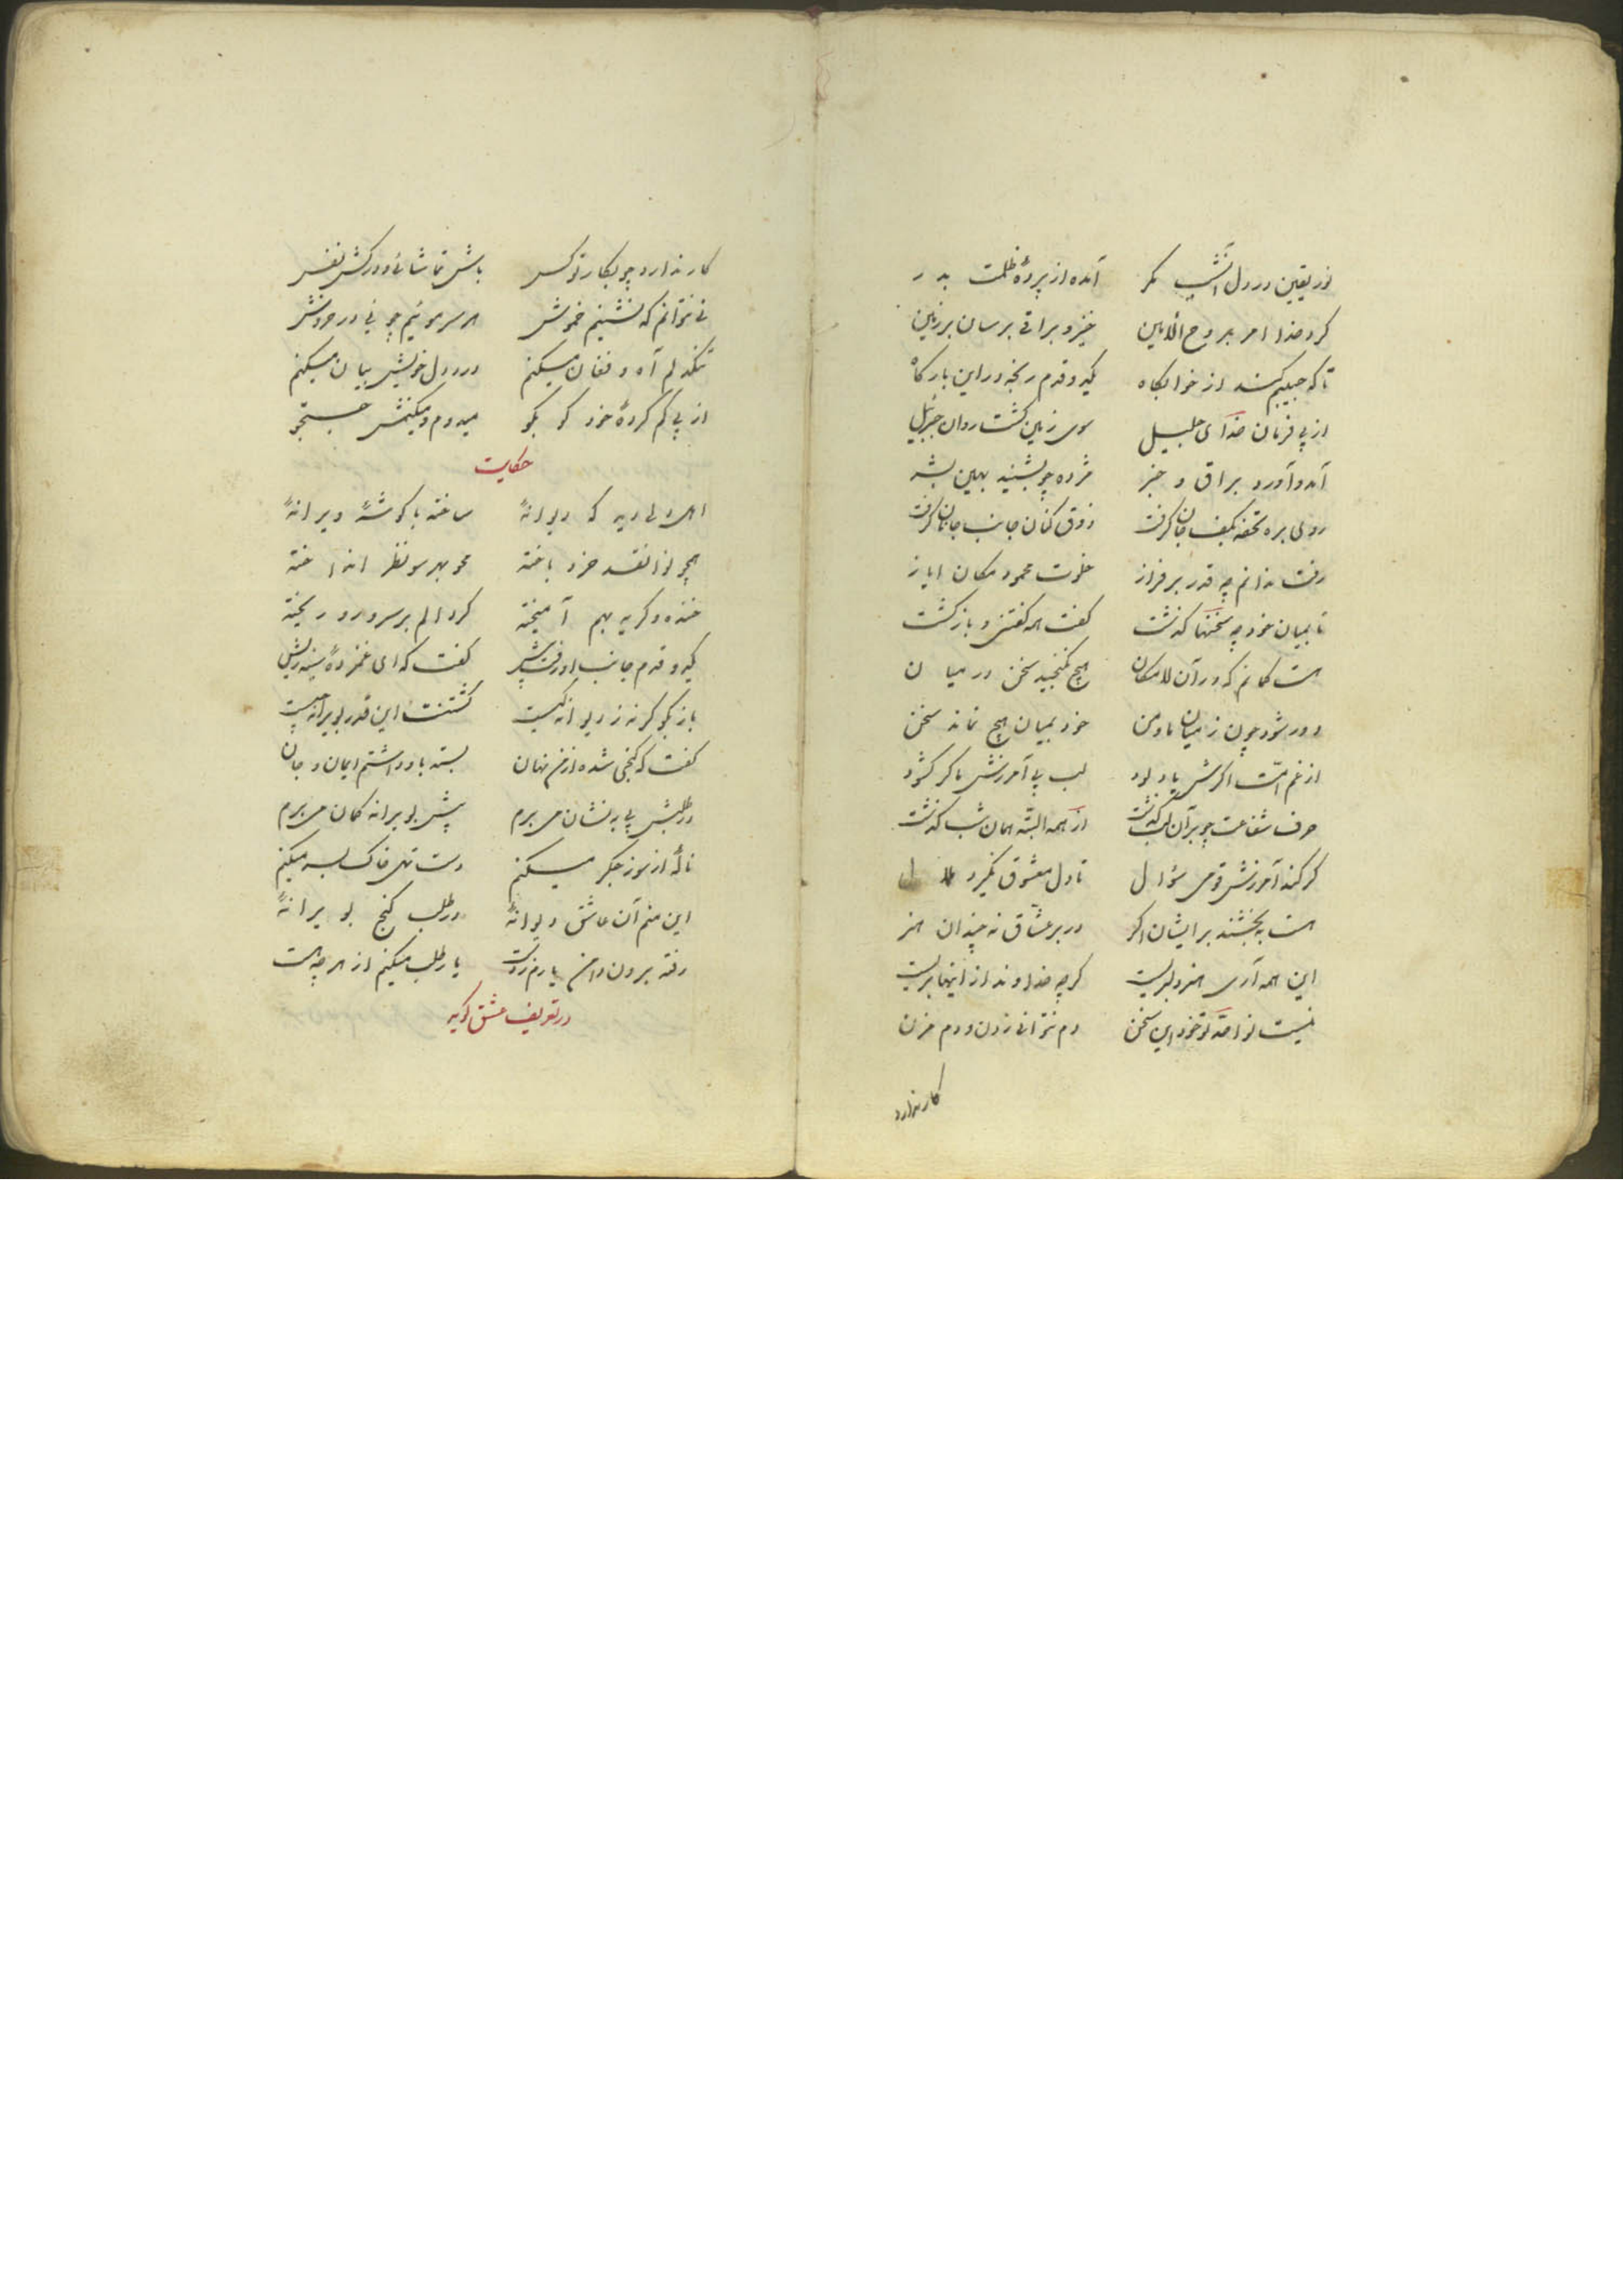 نور یقین در دل آن شب مگر آمده از پردهٔ ظلمت بدر
کرد خدا امر بروح الامین خیز و براقی برسان بر زمین
تا که حبیبم کند از خوابگاه یکدو قدم رنجه در این بارگاه
از پی فرمان خدای جلیل سوی زمین گشت روان جبرئیل
آمد و آورد براق و خبر مژده چو بشنید بهین بشر
روی بره تحفه بکف جان گرفت ذوق کنان جانب جانان گرفت
رفت ندانم چه قدر بر فراز خلوت محمود مکان ایاز
تا بمیان خود چه سخنها گذشت گفت همه گفتنی و باز گشت
هست گمانم که در آن لامکان هیچ نگنجید سخن در میان
دور شود چون ز میان ما و من خود بمیان هیچ نماند سخن
از غم امت اگرش یاد بود لب پی آمرزش ما کر گشود
حرف شفاعت چو بر آن لب گذشت از همه البته همان شب گذشت
گر کند آمرزش قومی سؤال تا دل معشوق نگیرد ملال
هست به بخشند بر ایشان اگر در بر عشاق نه چندان هنر
این همه آری هنر دلبریست گرچه خداوند از اینها بریست
نیست نوا حد تو خود این سخن دم نتوانی زدن و دم مزن
کار ندارد
کار ندارد چو بکار تو کس باش تماشائی و در کش نفس
نی نتوانم که نشینم خموش هر سر مویم چو نی در خروش
تنگدلم آه و فغان میکنم درد دل خویش بیان میکنم
از پی گم کردهٔ خود کو بکو میدوم و میکنمش جستجو
حکایت
دید که دیوانهٔ ساخته با گوشهٔ ویرانهٔ
همچو نوا نقد خرد باخته محو بهر سو نظر انداخته
خنده و گریه بهم آمیخته گرد الم بر سر و رو ریخته
یکدو قدم جانب او رفت پیش گفت که ای غمزدهٔ سینه ریش
باز بگو گرنه ز دیوانگیست گشتنت این قدر بویرانه چیست
گفت که گنجی شده از من نهان بسته باو داشتم ایمان و جان
در طلبش پی به نشان می برم پیش بویرانه گمان می برم
ناله از سوز جگر میکنم دست تهی خاک بسر میکنم
این منم آن عاشق دیوانهٔ در طلب گنج بویرانهٔ
رفته برون دامن یارم ز دست یار طلب میکنم از هر چه هست
در تعریف عشق گوید